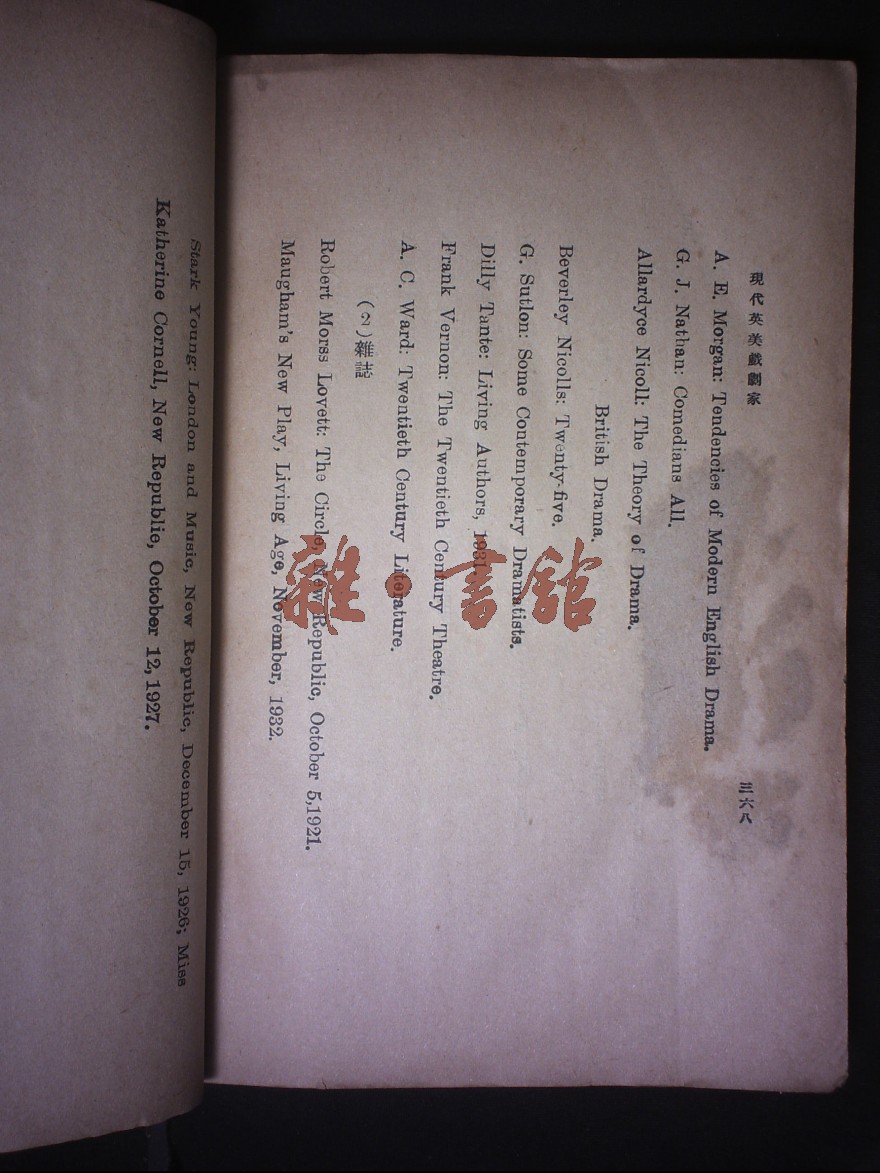 現代英美戲劇家
三六八
A. E. Morgan: Tendencies of Modern English Drama.
G. J. Nathan: Comedians All.
Allardyce Nicoll: The Theory of Drama.
British Drama.
Beverley Nicolls: Twenty-five.
G. Sutlon: Some Contemporary Dramatists.
Dilly Tante: Living Authors, 1931.
Frank Vernon: The Twentieth Century Theatre.
A. C. Ward: Twentieth Century Literature.
(2)雜誌
Robert Morss Lovett: The Circle, New Republic, October 5,1921.
Maugham's New Play, Living Age, November, 1932.
Stark Young: London and Music, New Republic, December 15, 1926; Miss
Katherine Cornell, New Republic, October 12,1927.
雜·書館